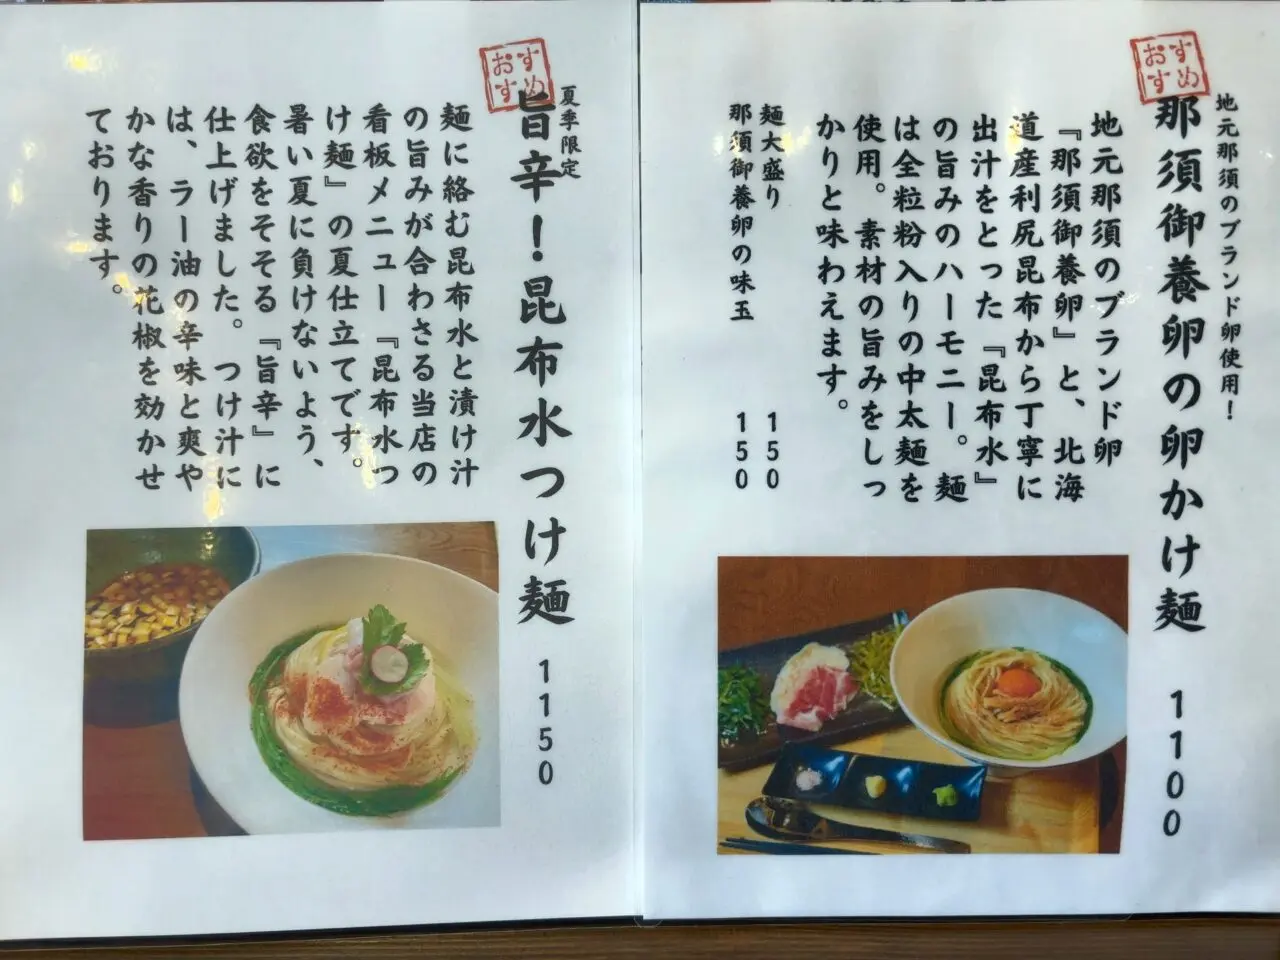 おすすめ
地元那須のブランド卵使用！
那須御養卵の卵かけ麺 1100
地元那須のブランド卵
『那須御養卵』と、北海
道産利尻昆布から丁寧に
出汁をとった『昆布水』
の旨みのハーモニー。麺
は全粒粉入りの中太麺を
使用。素材の旨みをしっ
かりと味わえます。
麺大盛り 150
那須御養卵の味玉 150
おすすめ
夏季限定
旨辛！昆布水つけ麺 1150
麺に絡む昆布水と漬け汁
の旨みが合わさる当店の
看板メニュー『昆布水つ
け麺』の夏仕立てです。
暑い夏に負けないよう、
食欲をそそる『旨辛』に
仕上げました。つけ汁に
は、ラー油の辛味と爽や
かな香りの花椒を効かせ
ております。